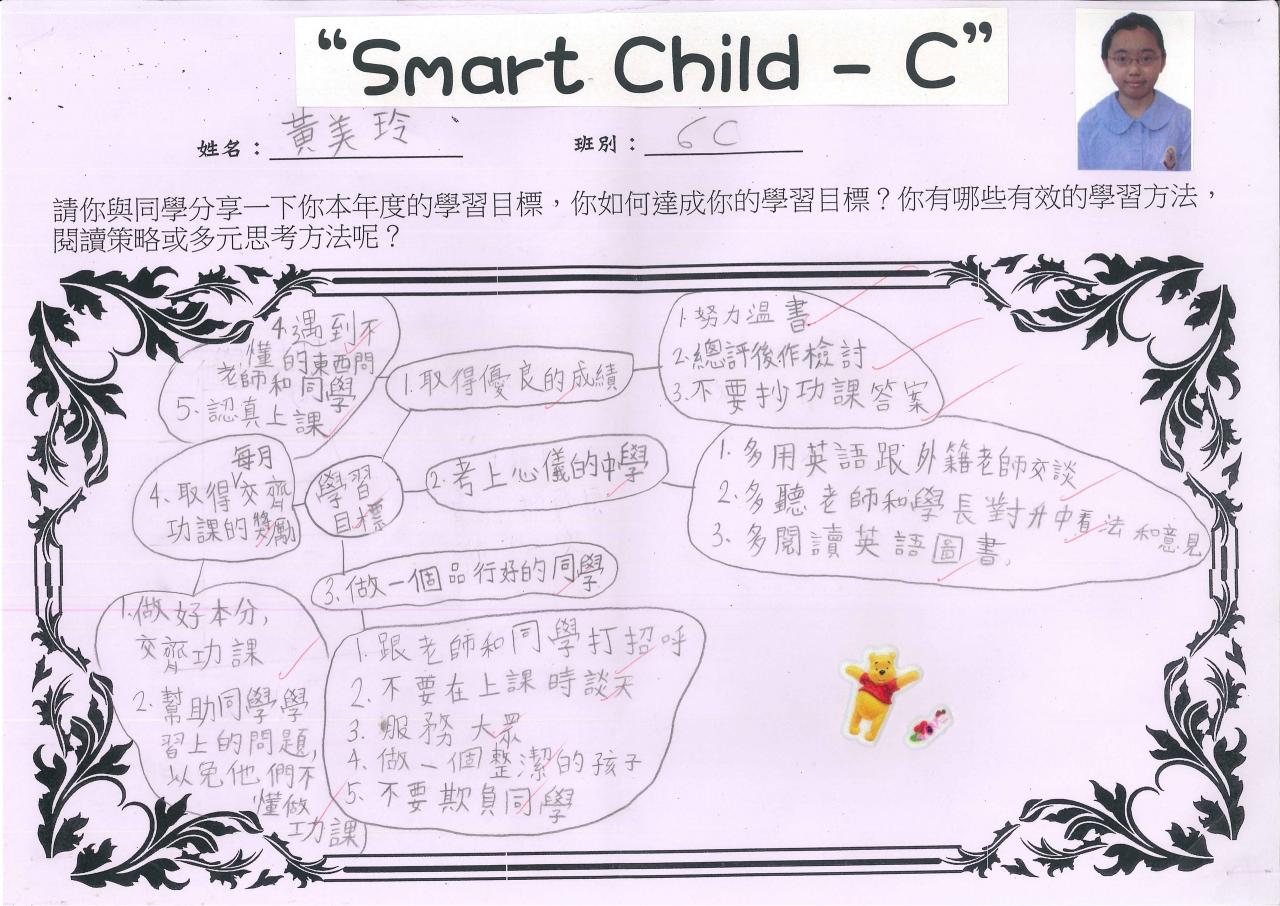 “Smart Child - C”
姓名：黃美玲
班別：6C
請你與同學分享一下你本年度的學習目標，你如何達成你的學習目標？你有哪些有效的學習方法，
閱讀策略或多元思考方法呢？
學習
目標
1.取得優良的成績
1.努力溫書
2.總評後作檢討
3.不要抄功課答案
4.遇到不
懂的東西問
老師和同學
5.認真上課
2.考上心儀的中學
1.多用英語跟外籍老師交談
2.多聽老師和學長對升中看法和意見
3.多閱讀英語圖書,
3.做一個品行好的同學
1.跟老師和同學打招呼
2.不要在上課時談天
3.服務大眾
4.做一個整潔的孩子
5.不要欺負同學
每月
4.取得交齊
功課的獎勵
1.做好本分,
交齊功課
2.幫助同學學
習上的問題,
以免他們不
懂做
功課